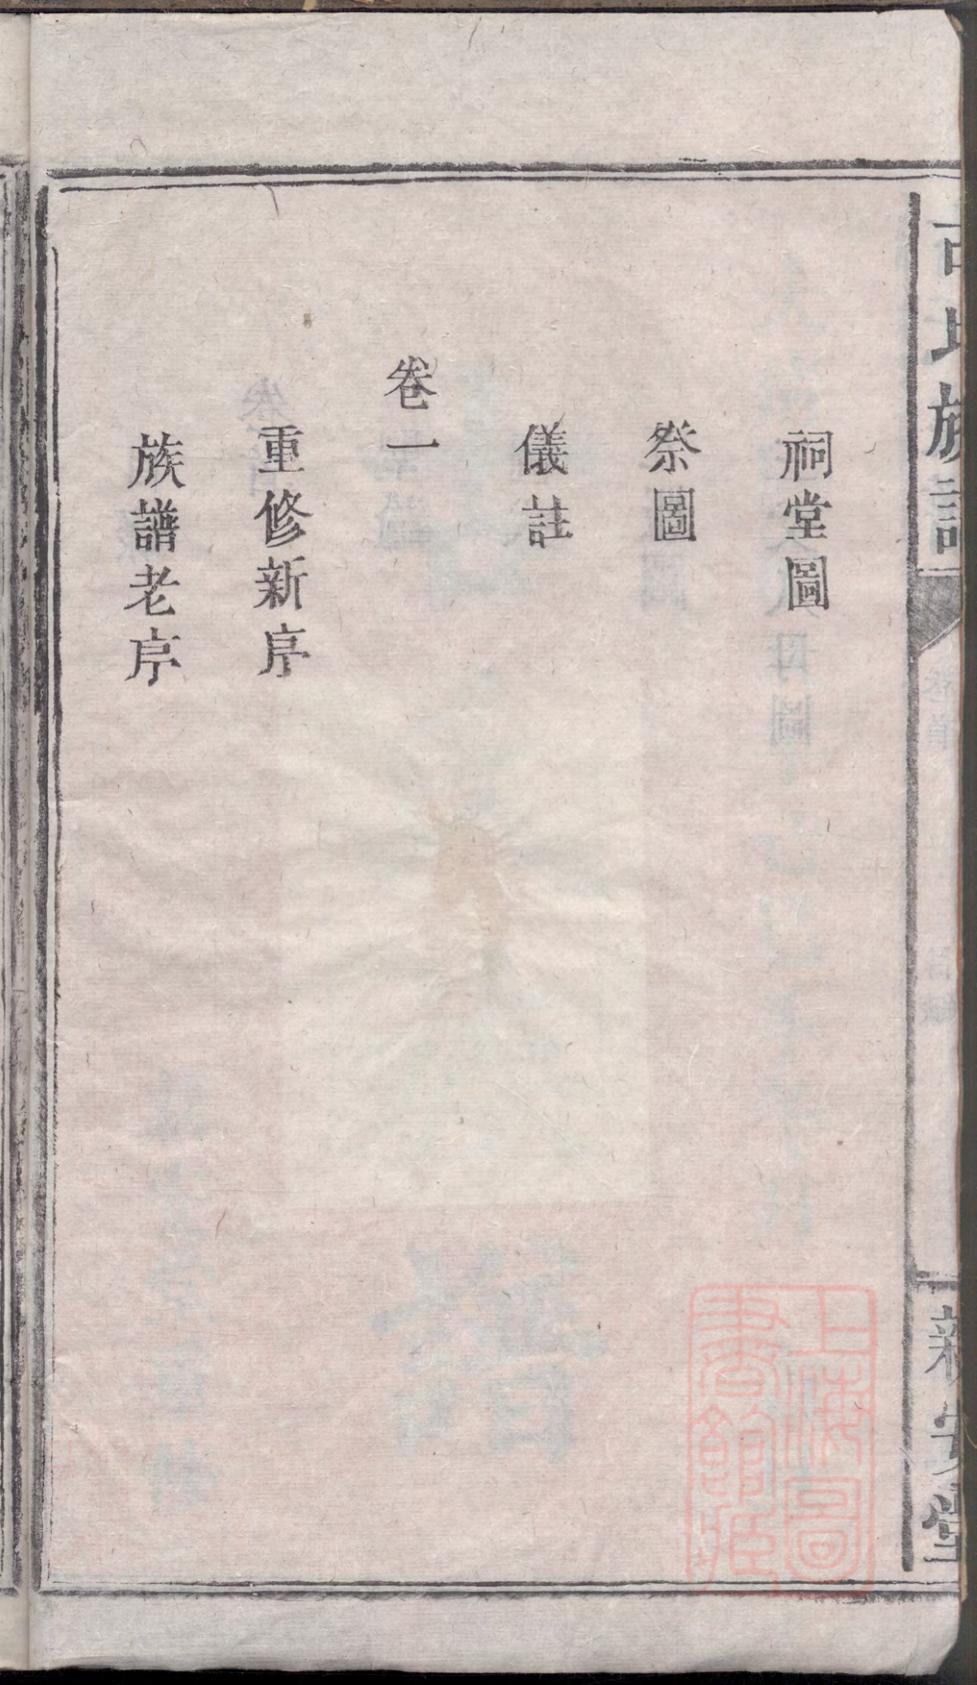 古氏族譜
新安堂
祠堂圖
祭圖
儀註
卷一
重修新序
族譜老序
上海圖
書館藏